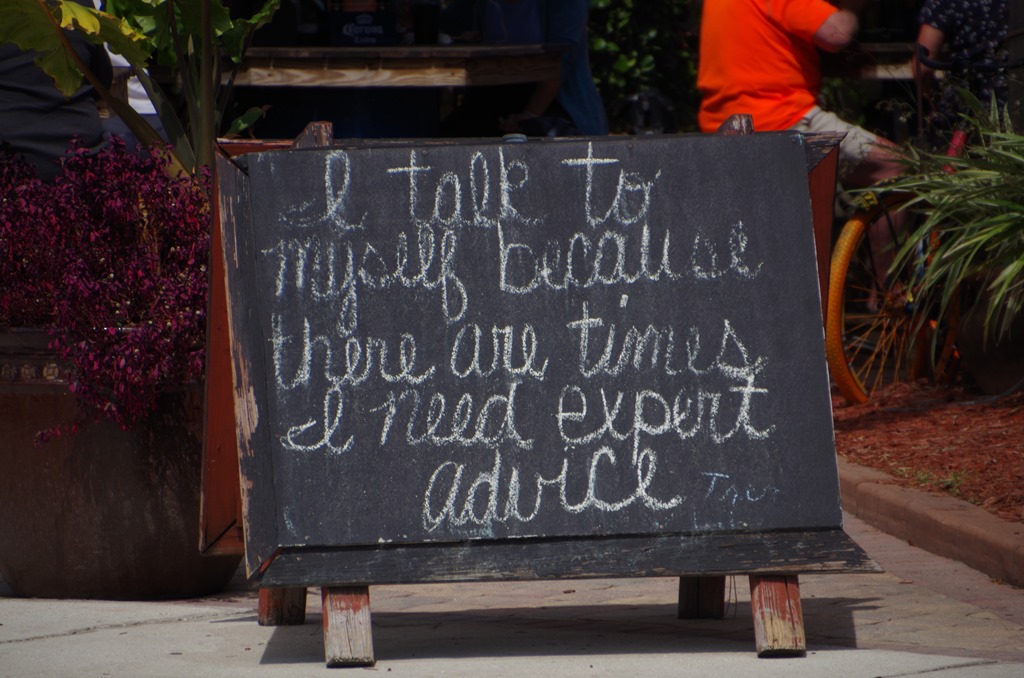 Corona
I talk to
myself because
there are times
I need expert
advice